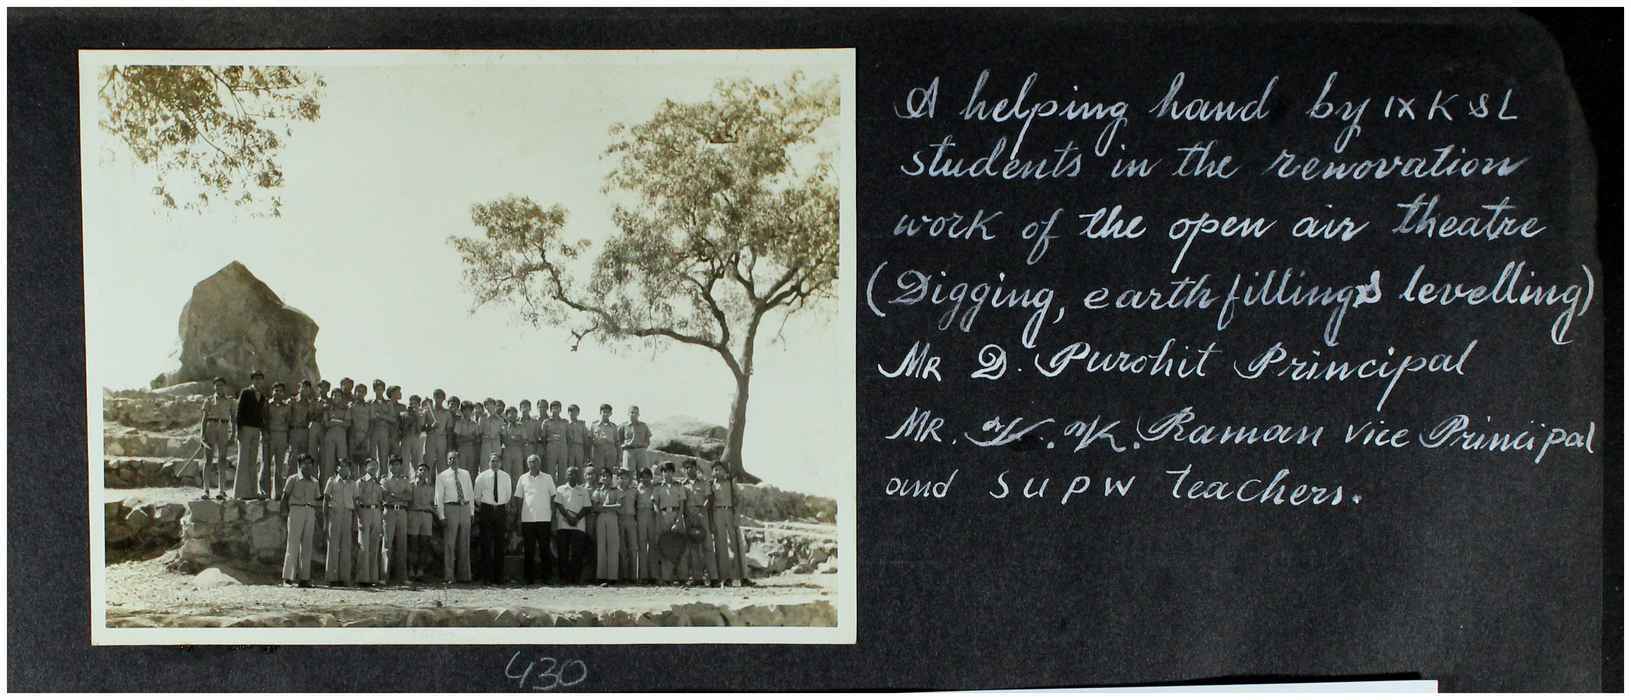 A helping hand by IX K & L
students in the renovation
work of the open air theatre
(Digging, earth filling & levelling)
MR D. Purohit Principal
MR. K. K. Raman Vice Principal
and S U P W teachers.
430